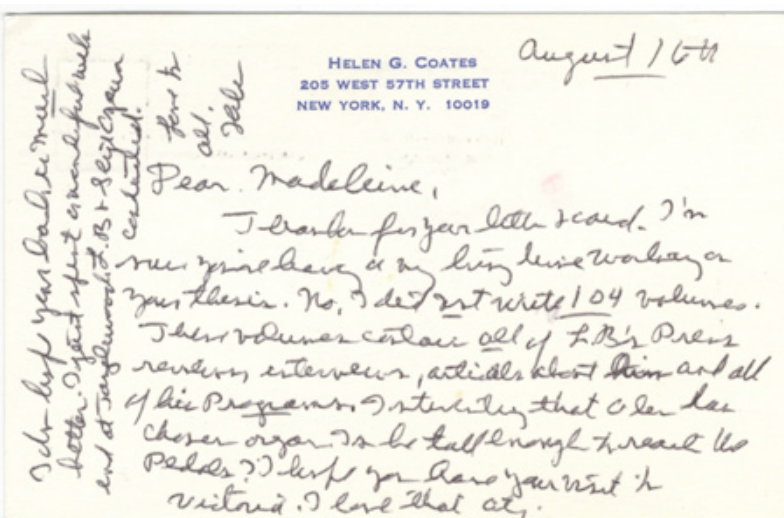 HELEN G. COATES
205 WEST 57TH STREET
NEW YORK, N. Y. 10019
August 16th
Dear Madeleine,
Thanks for your letter & card. I'm
sure you're having a very busy time working on
your thesis. No, I did not write 104 volumes.
These volumes contain all of L.B's Press
reviews, interviews, articles about him and all
of his Programs. Interesting that has
chosen organ. Is he tall enough to reach the
Pedals? I hope you have your visit to
Victoria. I love that city.
I do hope your back is much
better. I just spent a wonderful week
end at Tanglewood. L.B &
Love to
all.